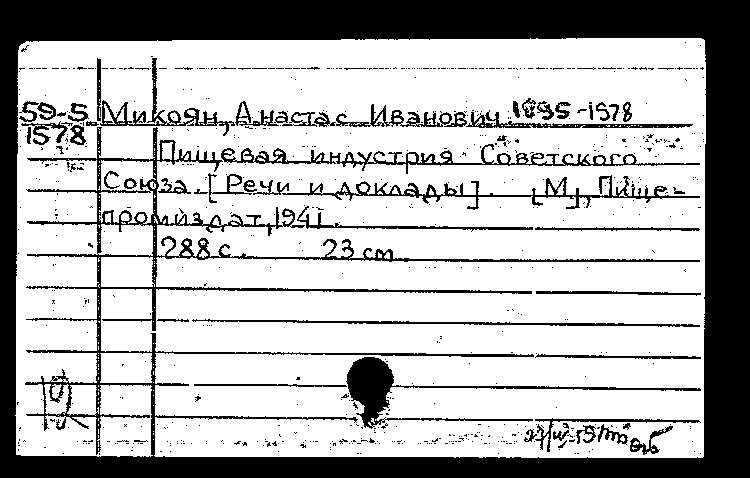 59-5 Микоян, Анастас Иванович 1895-1978
1578
Пищевая индустрия Советского
Союза. [Речи и доклады]. [М.], Пище-
промиздат, 1941.
288 с. 23 cm.